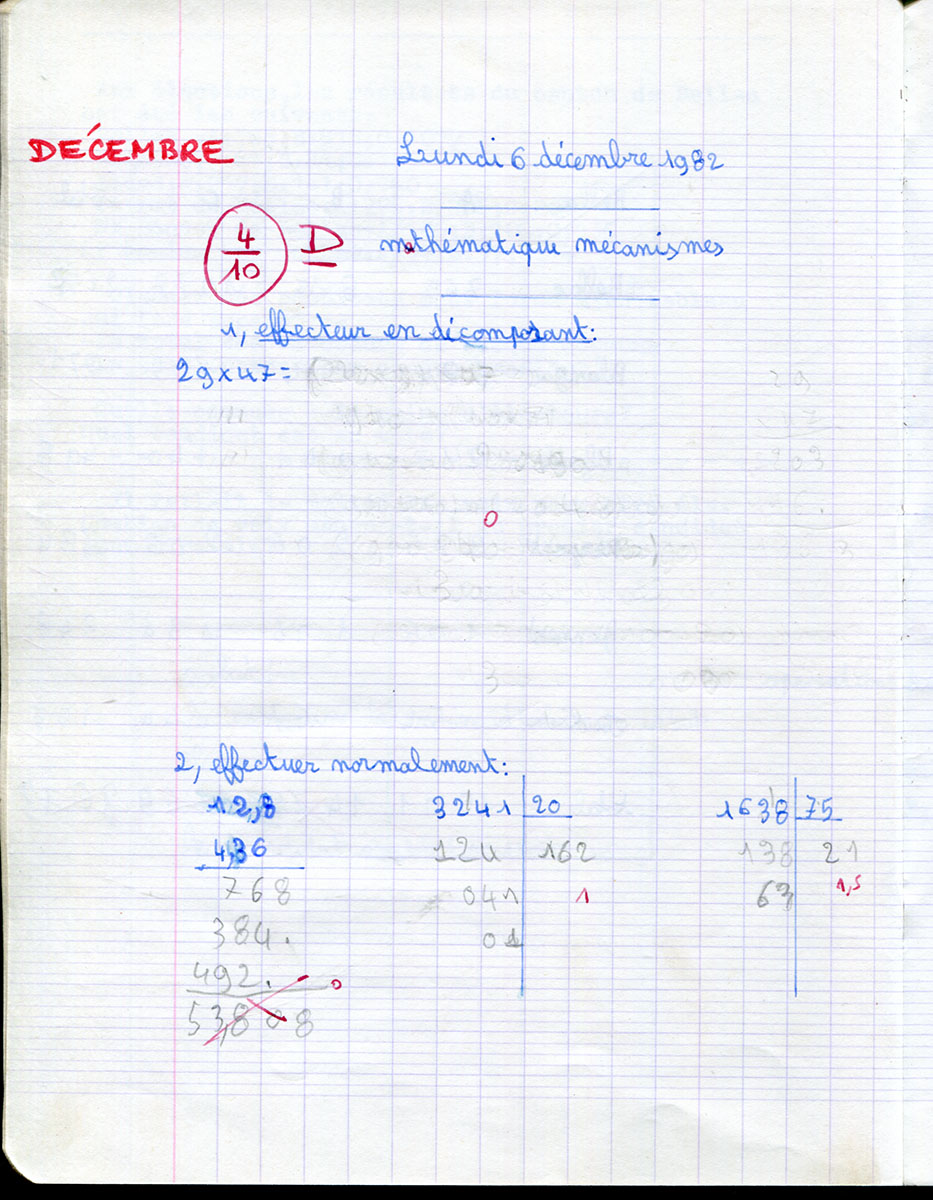 DÉCEMBRE
Lundi 6 décembre 1982
4/10 D mathématique mécanismes
1, effecteur en décomposant:
29 x 47 =
29
203
0
2, effectuer normalement:
12,8 3241 20 1638 75
4,36 124 162 138 21
768 041 1 63 1,5
384. 01
492. 0
53,808